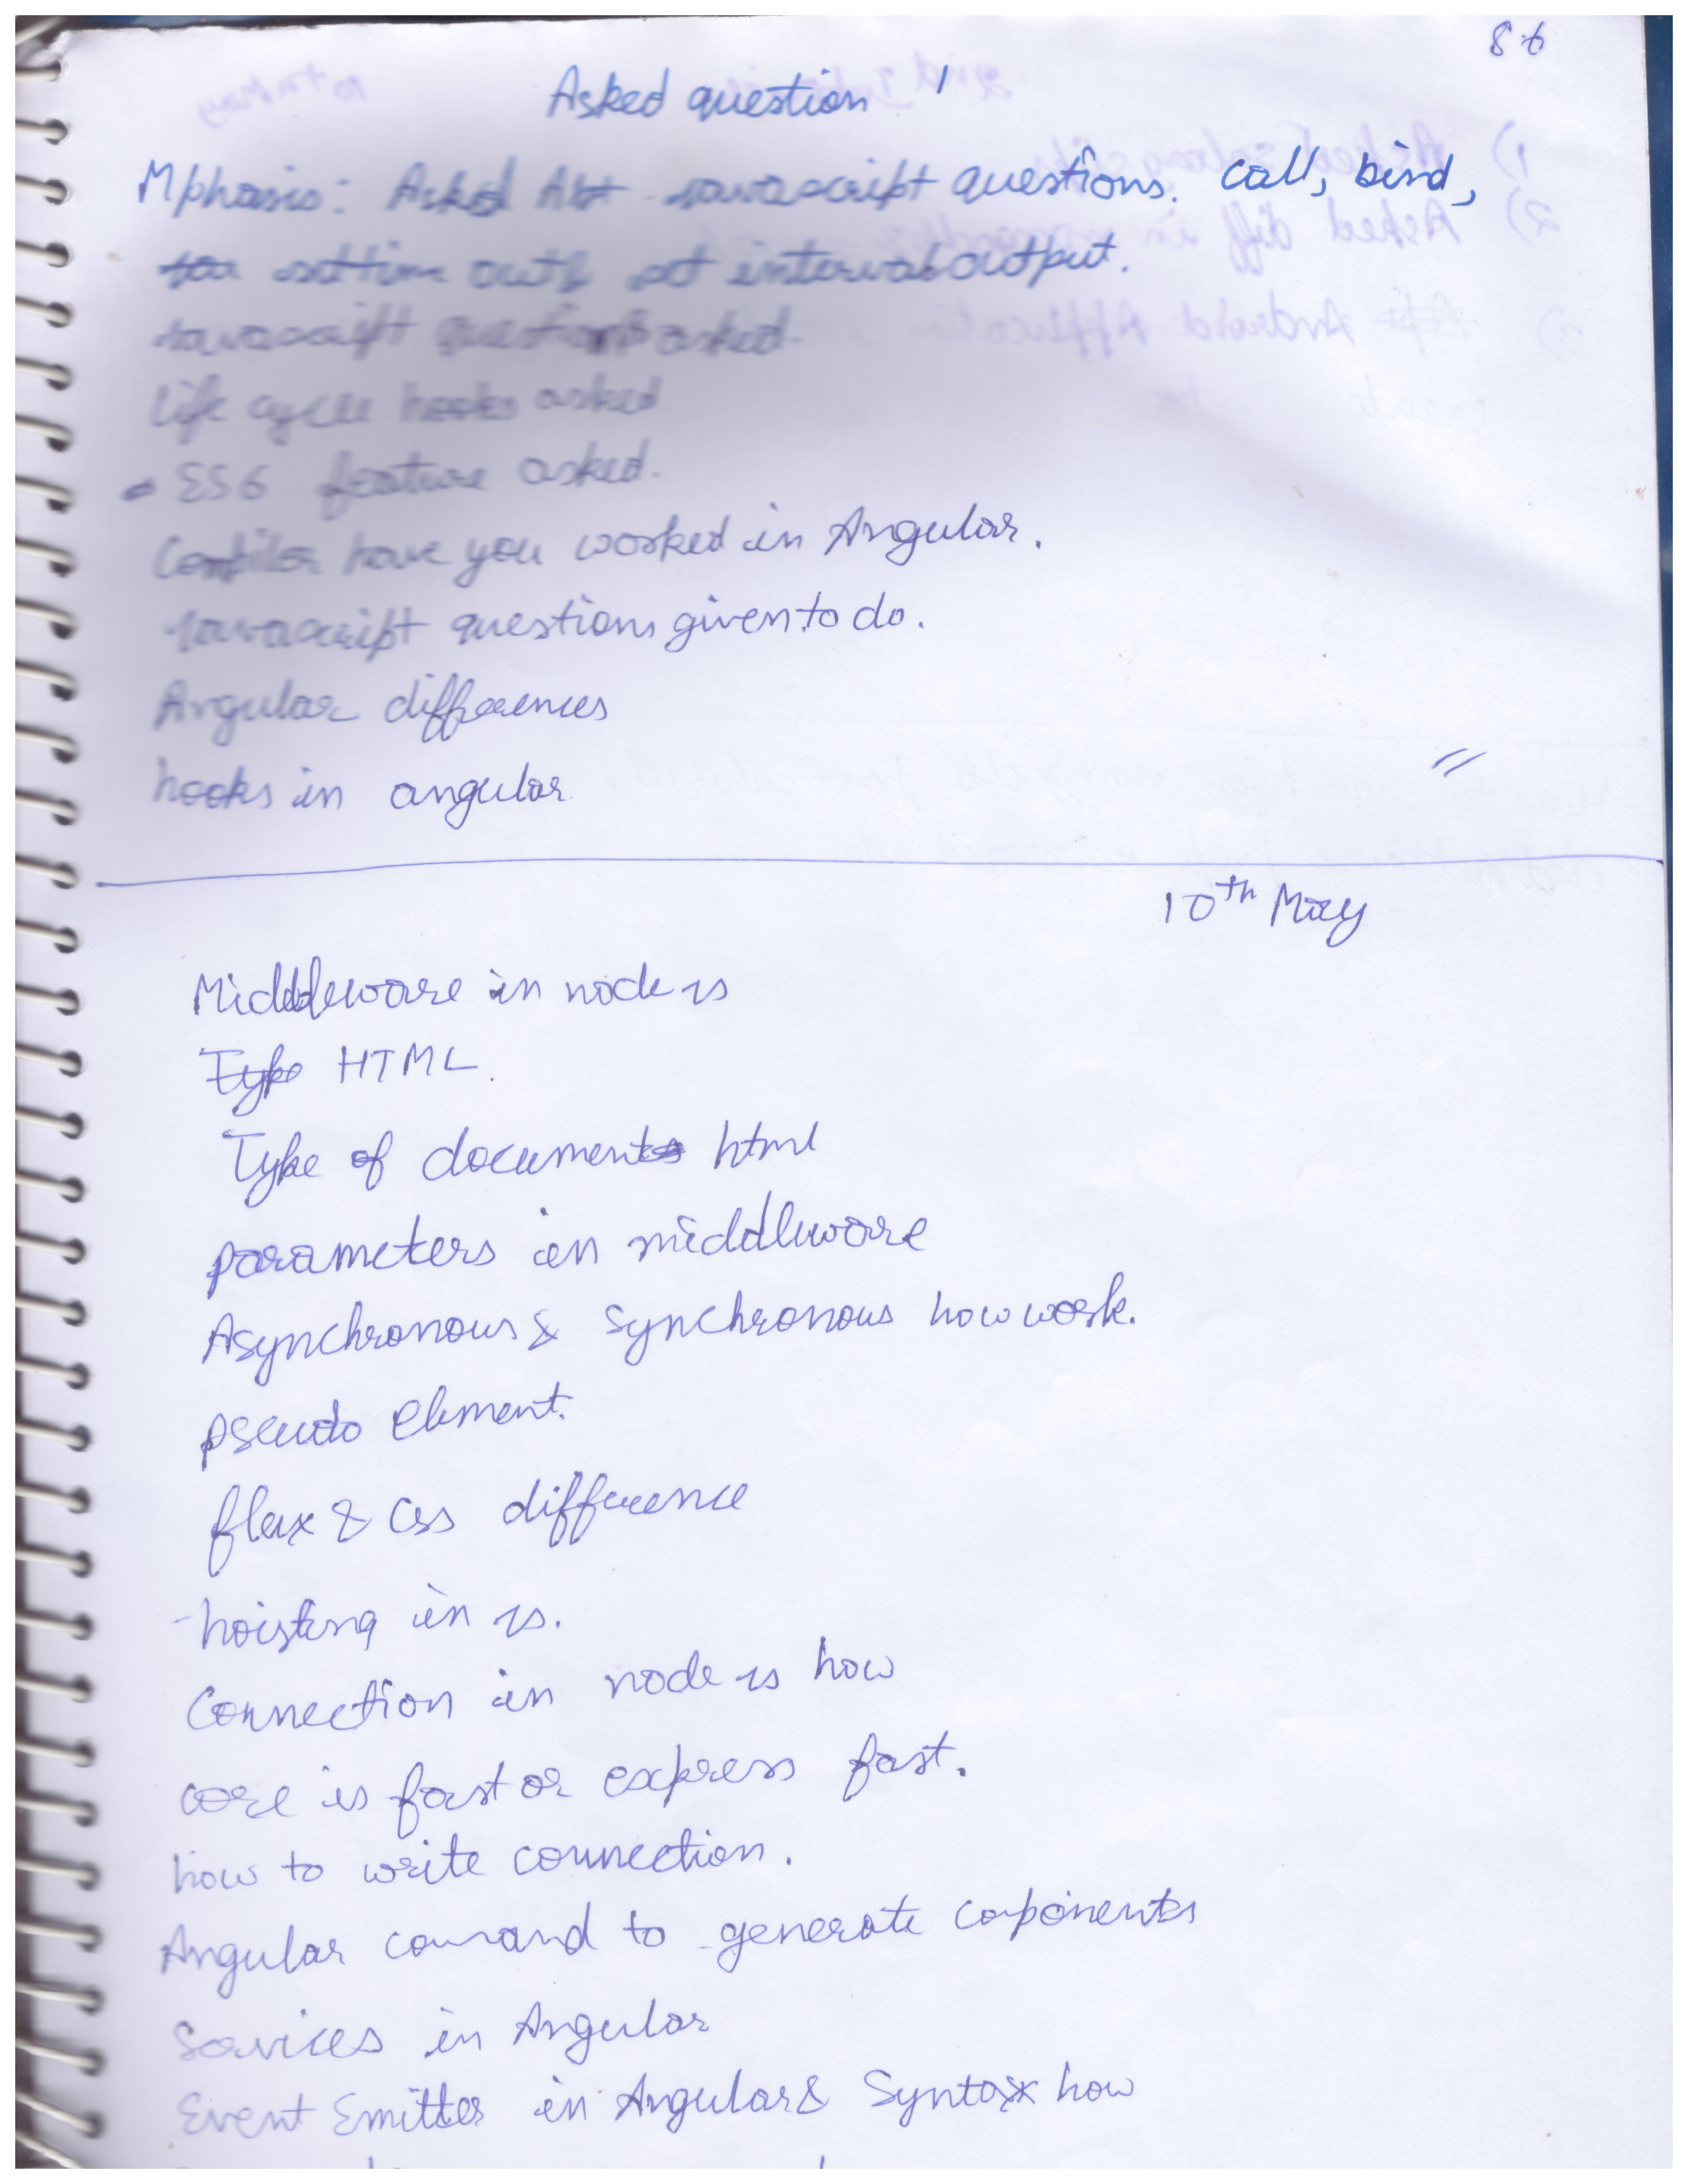 86
Asked question
Mphasis: Asked Javascript questions. call, bind,
settime out & set interval output.
Javascript questions asked.
Life cycle hooks asked
ES6 feature asked.
Compiler have you worked in Angular.
Javascript questions given to do.
Angular differences
hooks in angular
10th May
Middleware in node Js
Type HTML.
Type of documents html
parameters in middleware
Asynchronous & Synchronous how work.
pseudo element.
flex & css difference
-hoisting in Js.
Connection in node Js how
core is fast or express fast.
how to write connection.
Angular comand to generate coponents
Services in Angular
Event Emitter in Angular & Syntax how